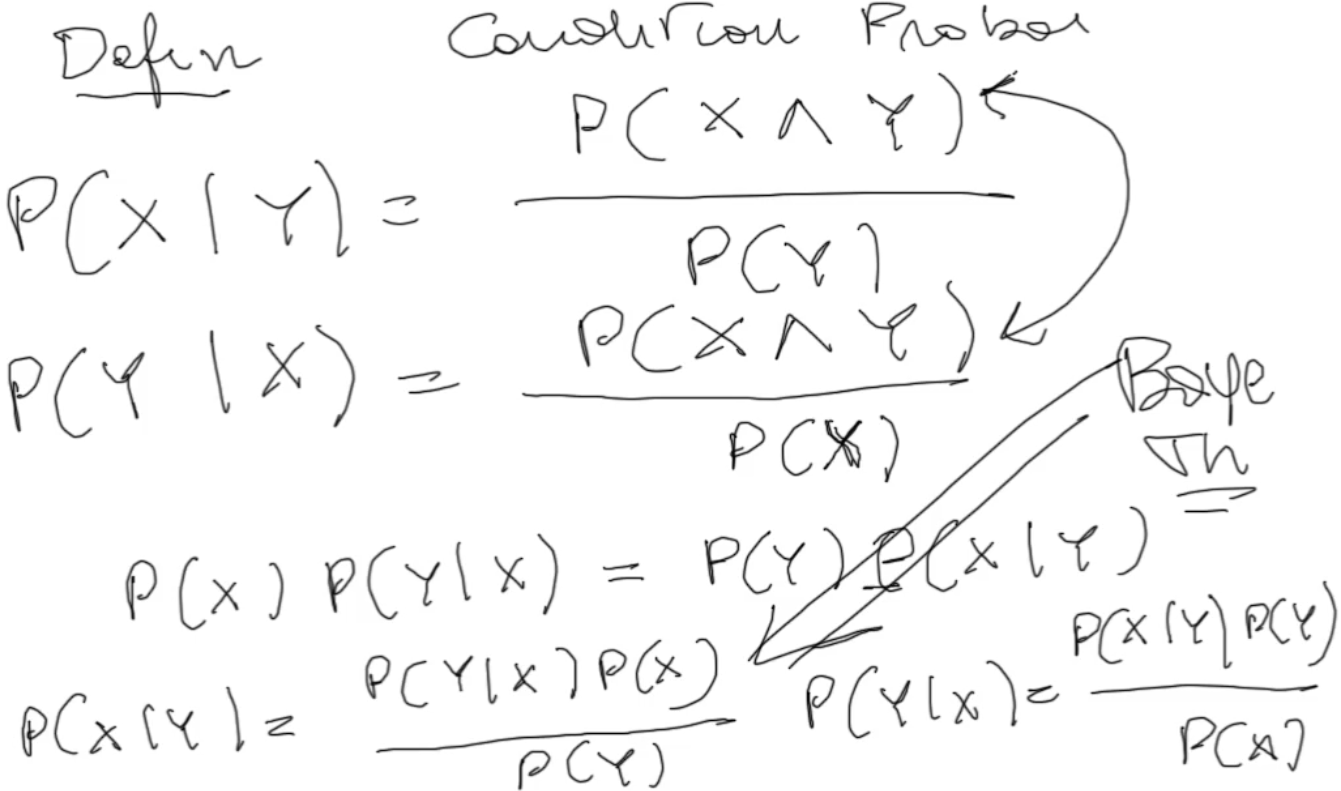 Defin Condition Probab
P(X | Y) = P(X ∧ Y) / P(Y)
P(Y | X) = P(X ∧ Y) / P(X)
Baye
Th
P(X) P(Y|X) = P(Y) P(X|Y)
P(X|Y) = P(Y|X) P(X) / P(Y) P(Y|X) = P(X|Y) P(Y) / P(X)